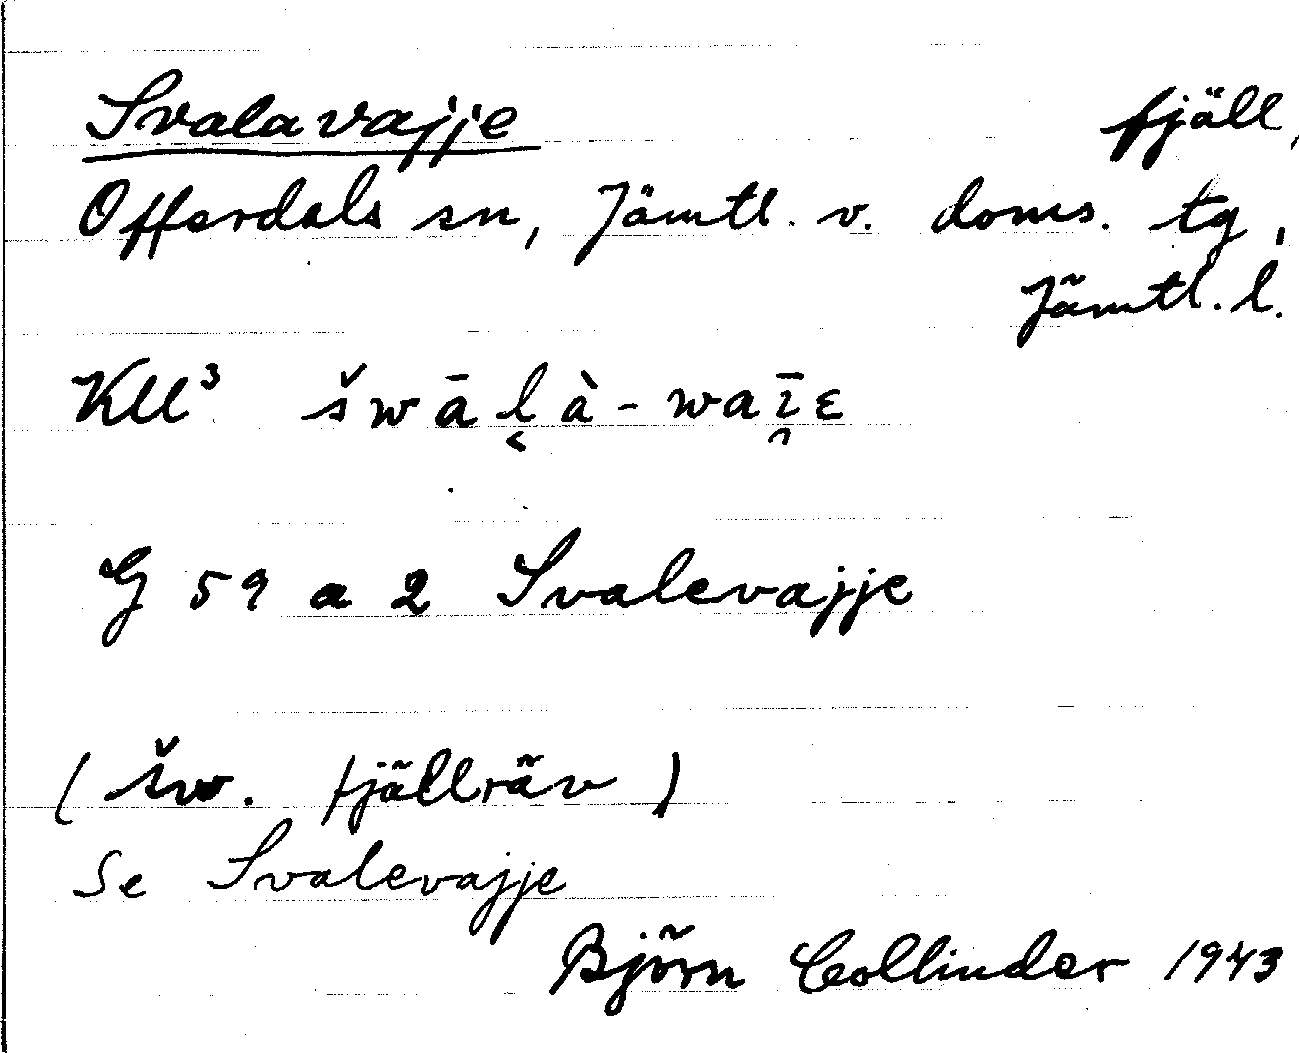 Svalavajje fjäll,
Offerdals sn, Jämtl. v. doms. tg,
Jämtl. l.
KLL³ šwāl̬à-waī̯ɛ
G 59 a 2 Svalevajje
(šw. fjällräv)
Se Svalevajje
Björn Collinder 1943